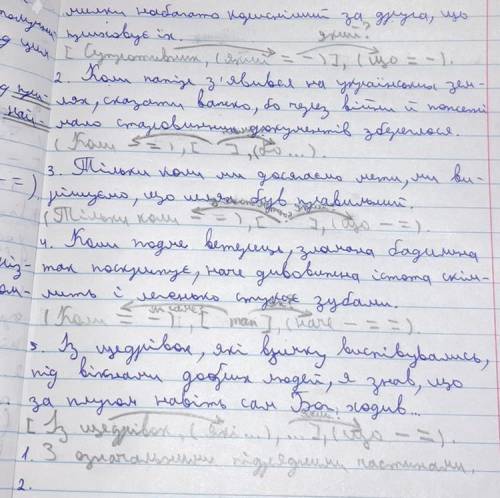 милки набагато корисніший за друга, що
приховує їх.
який?
[ Супротивник, (який = –)], (що = –).
2. Коли папір з'явився на українських зем-
лях, сказати важко, бо через війни й пожежі
мало старовинних документів збереглося.
(Коли = –), [ ], (бо...).
3. Тільки коли ми досягаємо мети, ми ви-
рішуємо, що шлях був правильний.
(Тільки коли – =), [ ], (що – =).
4. Коли подме ветерець, зламана бадилина
так поскрипує, наче дивовижна істота скім-
лить і легенько стукає зубами.
(Коли = –), [ так ], (наче – = =).
5. Із щедрівок, які взимку виспівувались,
під вікнами добрих людей, я знав, що
за плугом навіть сам Бог ходив...
[ Із щедрівок, (які...), ...], (що – =).
1. З означальними підрядними частинами.
2.